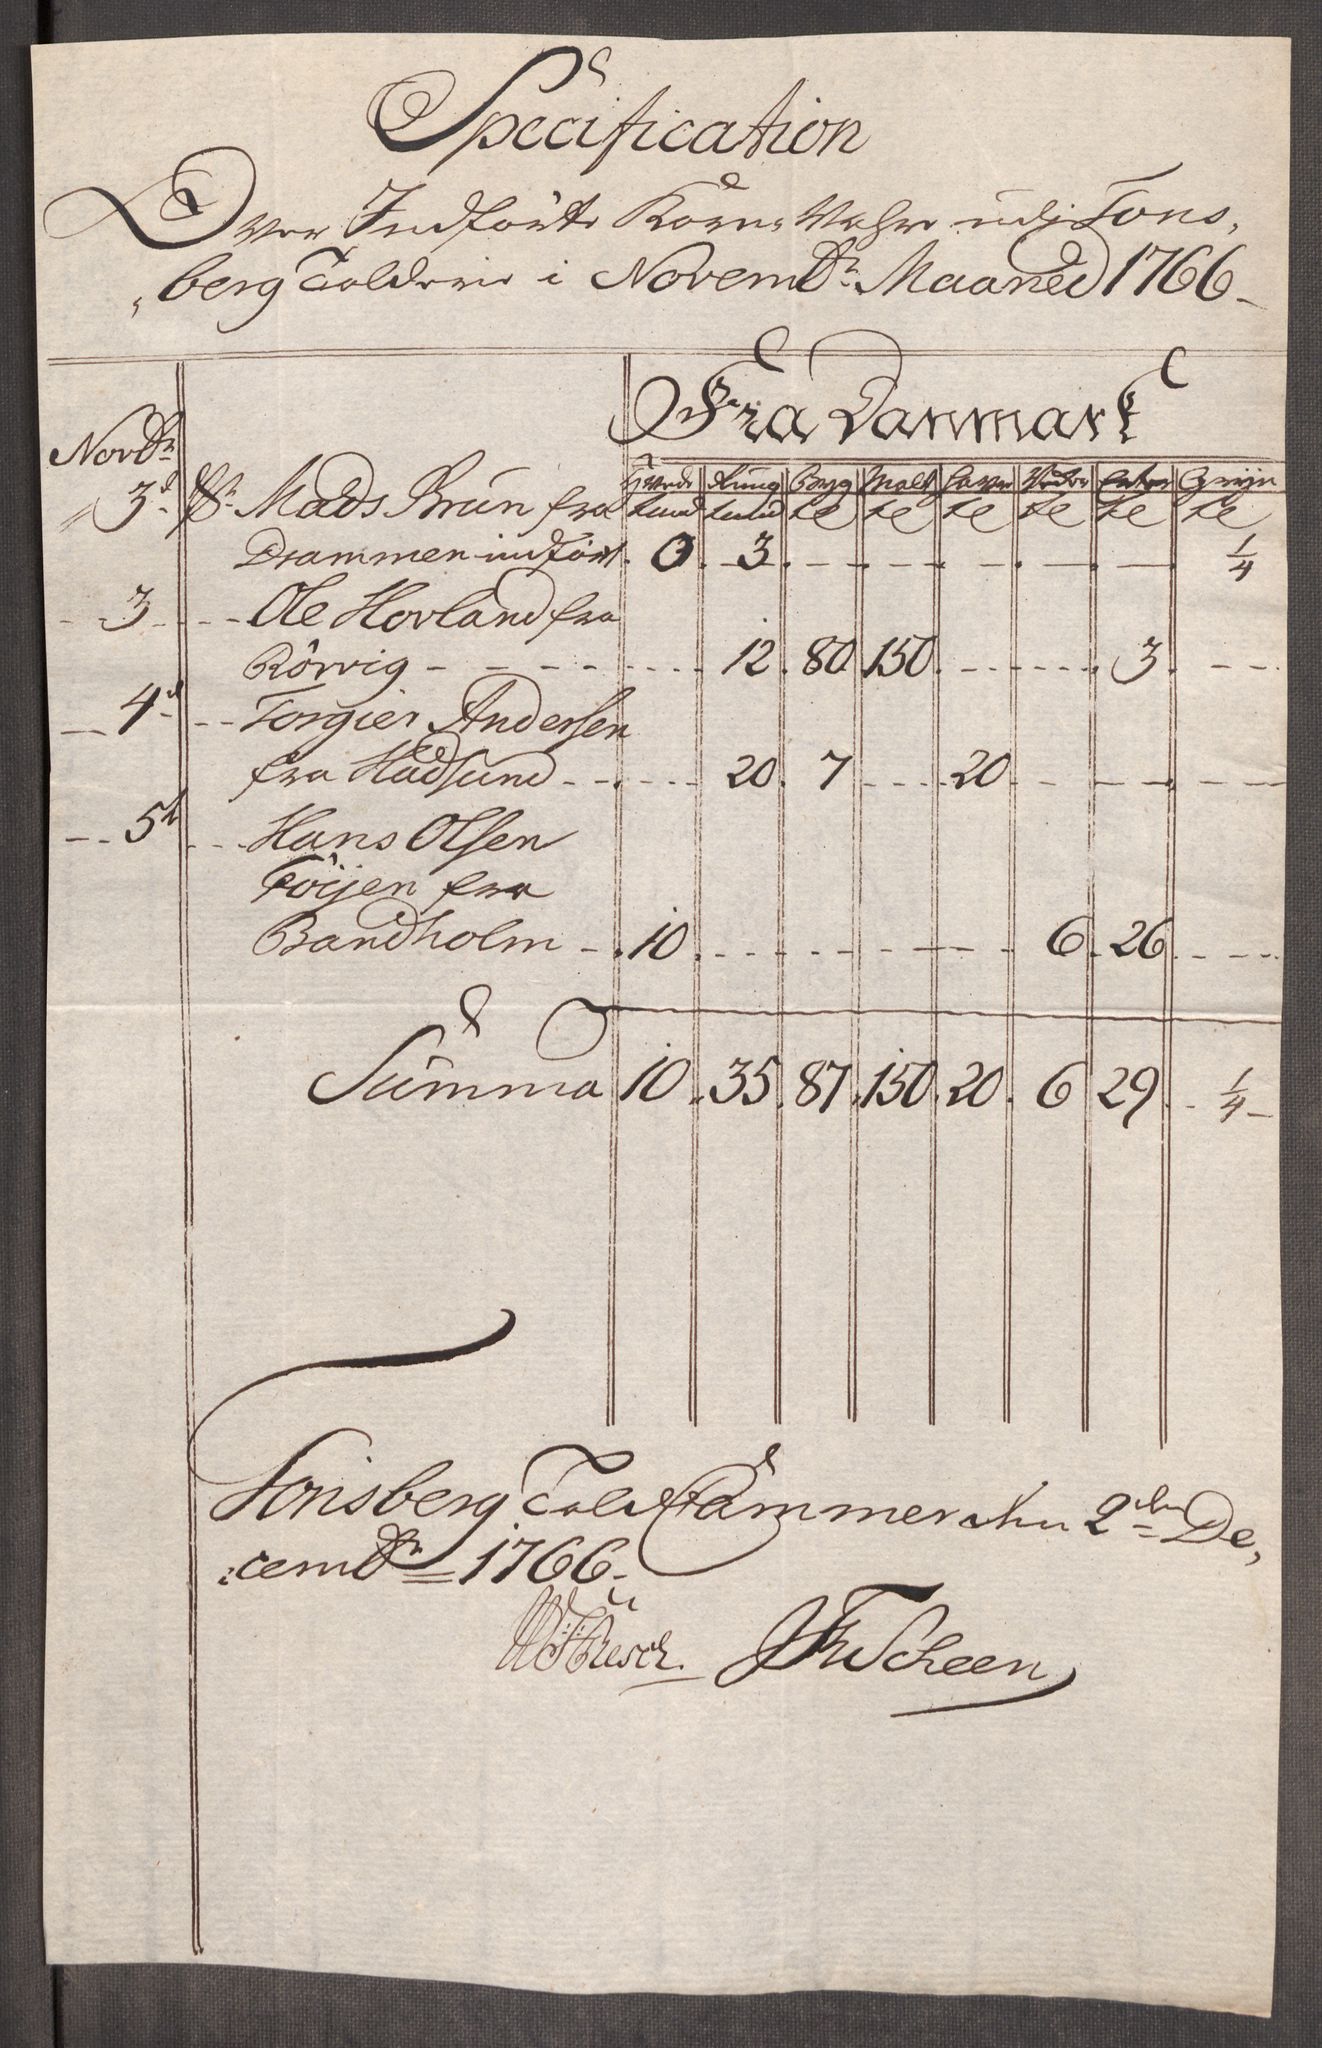 Specification
Over Indförte Korn-Vahre udj Tons,
,berg Tolderie i Novembr: Maaned 1766
Fra Danmark
Novbr:
Hvede Rung Byg Malt Havre Erter Gryn
tund tund te te te te te te
3d pr: Mads Brun fra
Drammen indfört 0 3 1/4
3 Ole Hovland fra
Rörvig 12 80 150 3
4d Torgier Andersen
fra Hadsund 20 7 20
5t Hans Olsen
Töijen fra
Bandholm 10 6 26
Summa 10 35 87 150 20 6 29 1/4
Tonsberg Told Kammer den 2den De,
,cembr 1766
Resch. Scheen